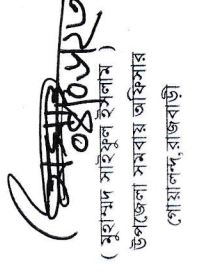 ( মুহাম্মদ সাইফুল ইসলাম )
উপজেলা সমবায় অফিসার
গোয়ালন্দ,রাজবাড়ী